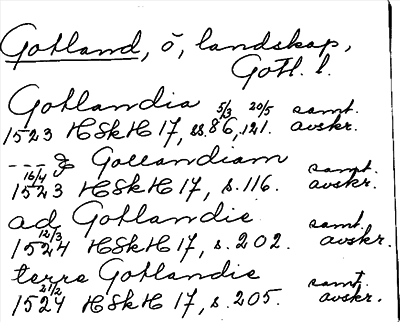 Gotland, ö, landskap,
Gotl. l.
Gotlandia 5/3 20/5 samt.
1523 HSkH 17, ss. 86, 121. avskr.
--- Gollandiam samt.
16/4 1523 HSkH 17, s. 116. avskr.
ad Gotlandie samt.
12/3 1524 HSkH 17, s. 202. avskr.
terre Gotlandie samt.
21/2 1524 HSkH 17, s. 205. avskr.